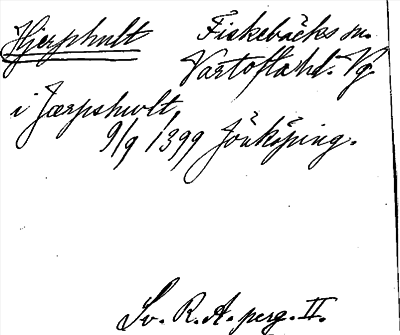 Hjerphult Fiskebäcks sn.
Vartofta hd. Vg.
i Jærpshwlt
9/9 1399 Jönköping.
Sv. R. A. perg. II.